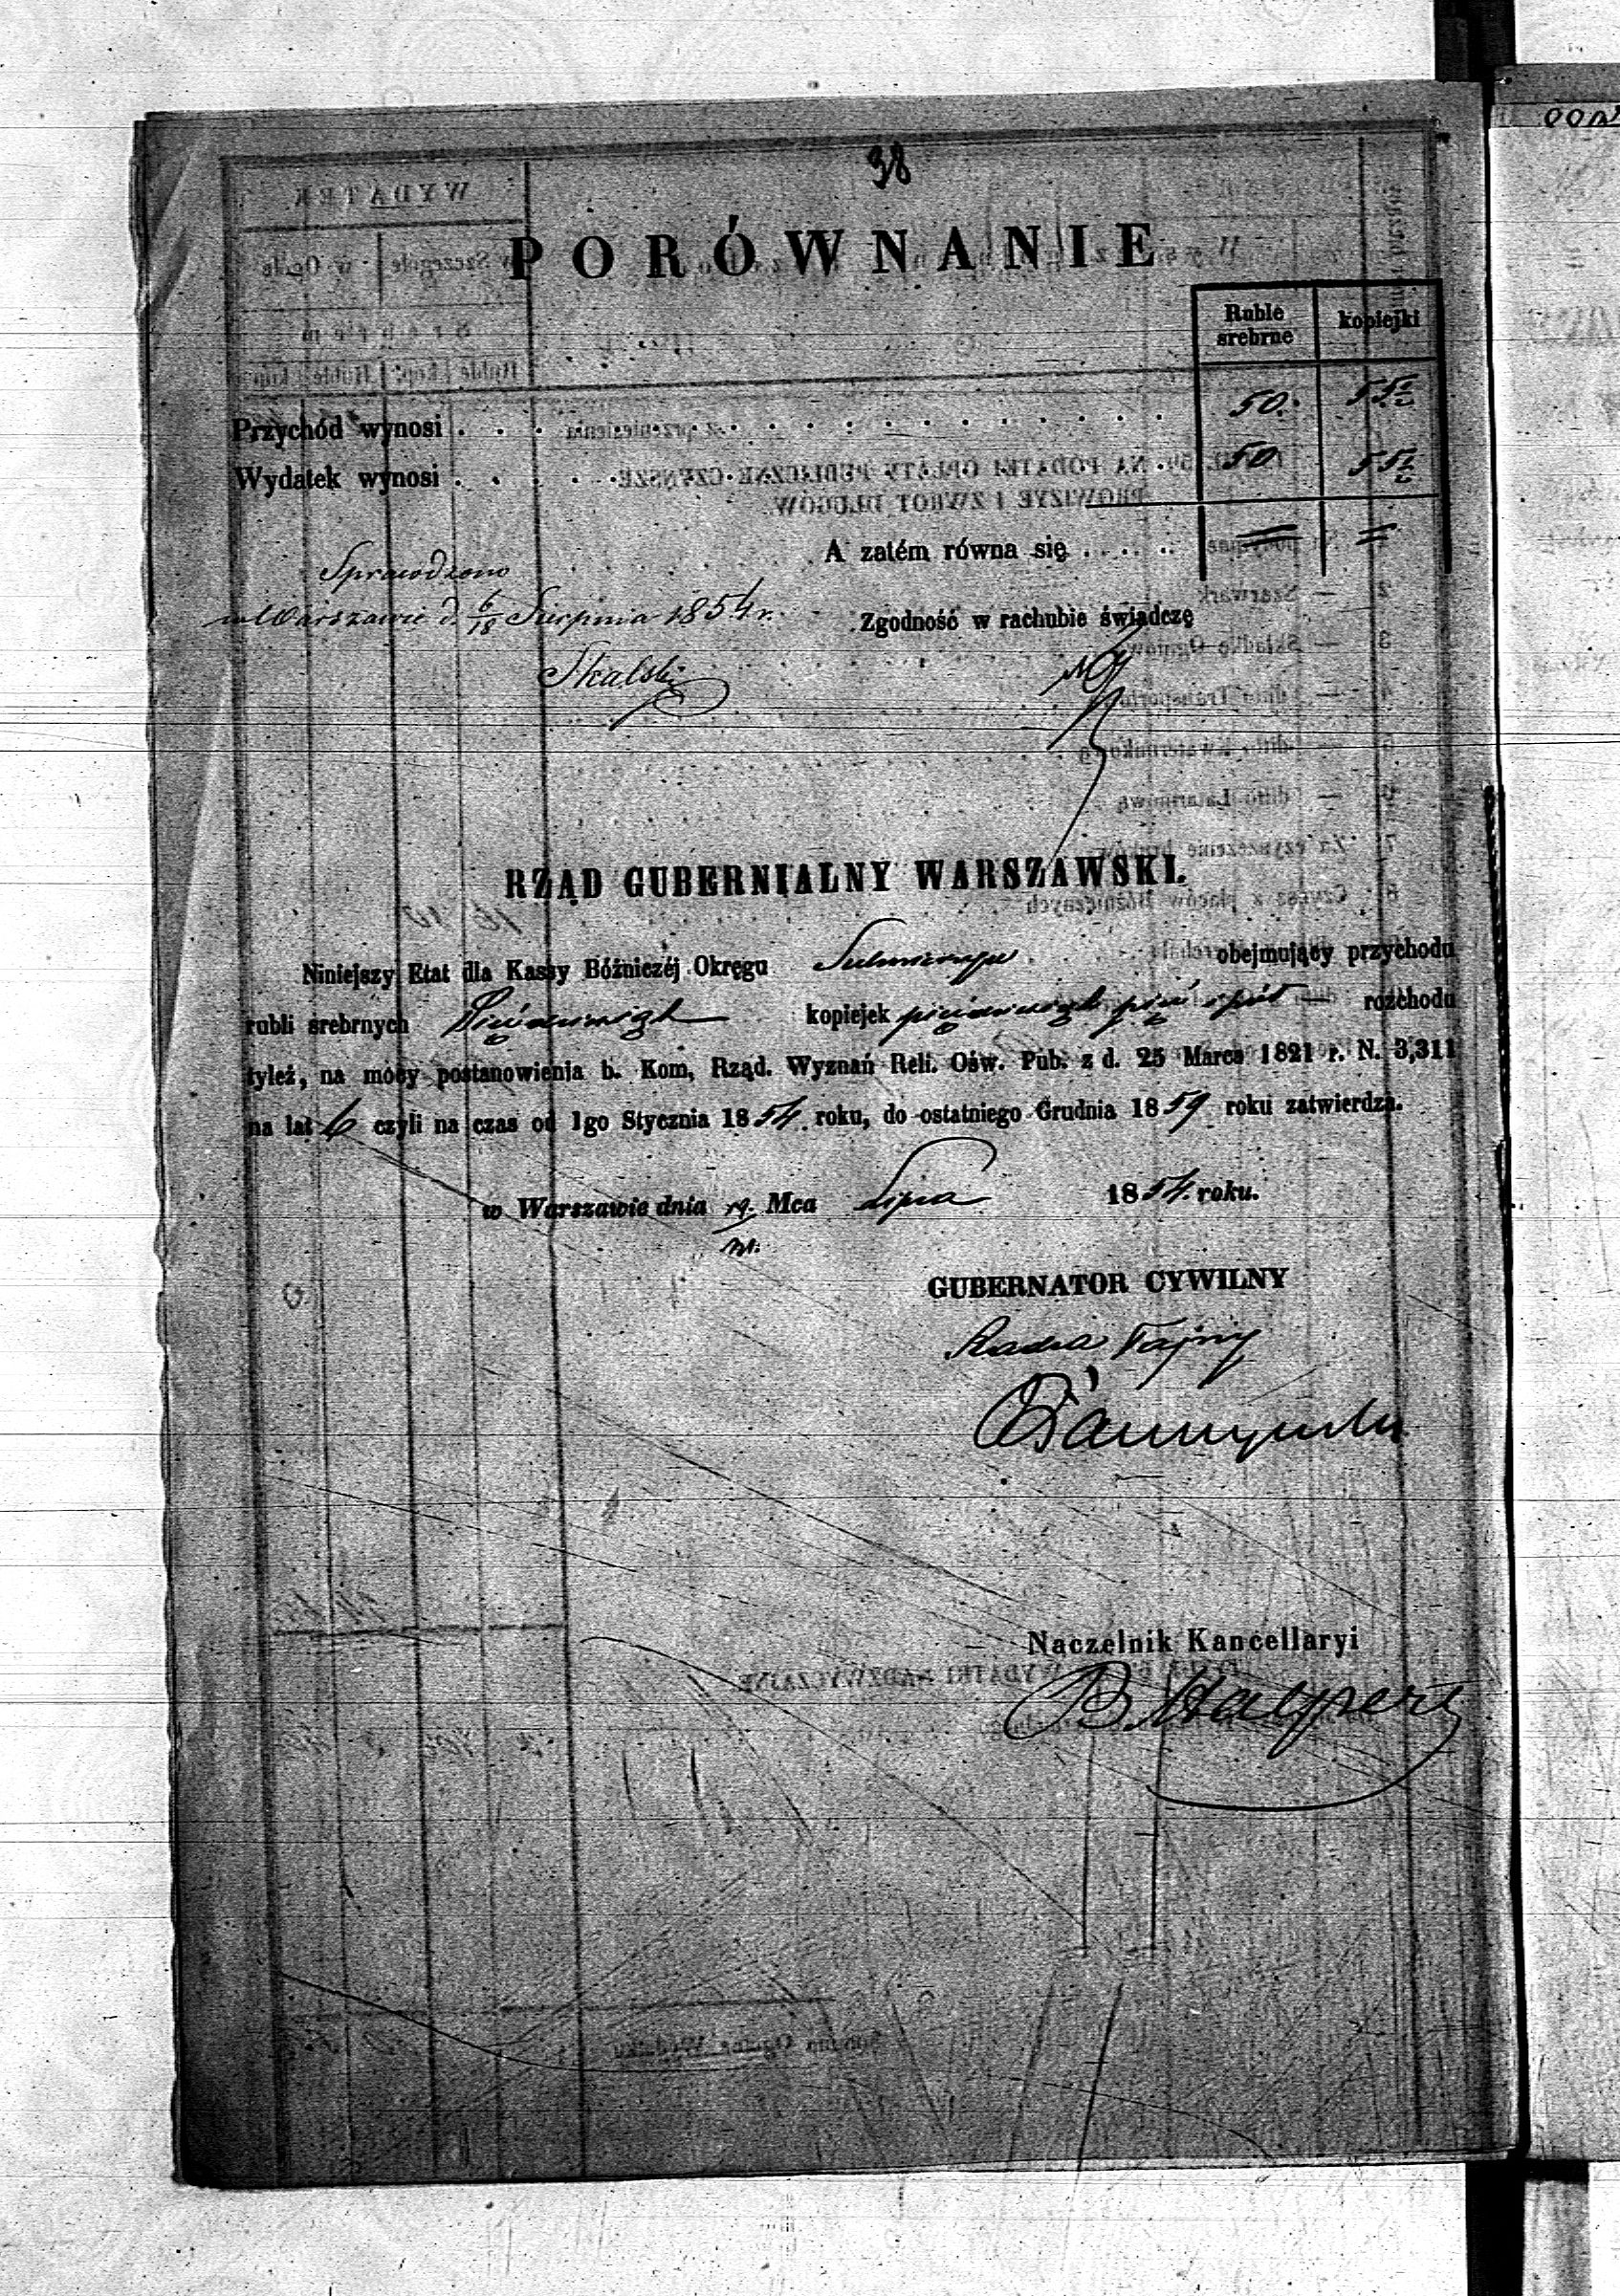 38
PORÓWNANIE
Ruble srebrne kopiejki
Przychód wynosi . . . . . . . . . . . . . . . . 50. 55½
Wydatek wynosi . . . . . . 50 55½
A zatém równa się . . . . . = =
Sprawdzono
w Warszawie d. 6/18 Sierpnia 1854 r. Zgodność w rachubie świadczę
Skalski
RZĄD GUBERNIALNY WARSZAWSKI.
Niniejszy Etat dla Kassy Bóźniczéj Okręgu Sulmierzyce obejmujący przychodu
rubli srebrnych Pięćdziesiąt kopiejek pięćdziesiąt pięć i pół — rozchodu
tyleż, na mocy postanowienia b. Kom, Rząd. Wyznań Reli. Ośw. Pub. z d. 25 Marca 1821 r. N. 3,311
na lat 6 czyli na czas od 1go Stycznia 1854 roku, do ostatniego Grudnia 1859 roku zatwierdza.
w Warszawie dnia 19/31. Mca Lipca 1854. roku.
GUBERNATOR CYWILNY
Radca Tajny
Naczelnik Kancellaryi
B. Halpert